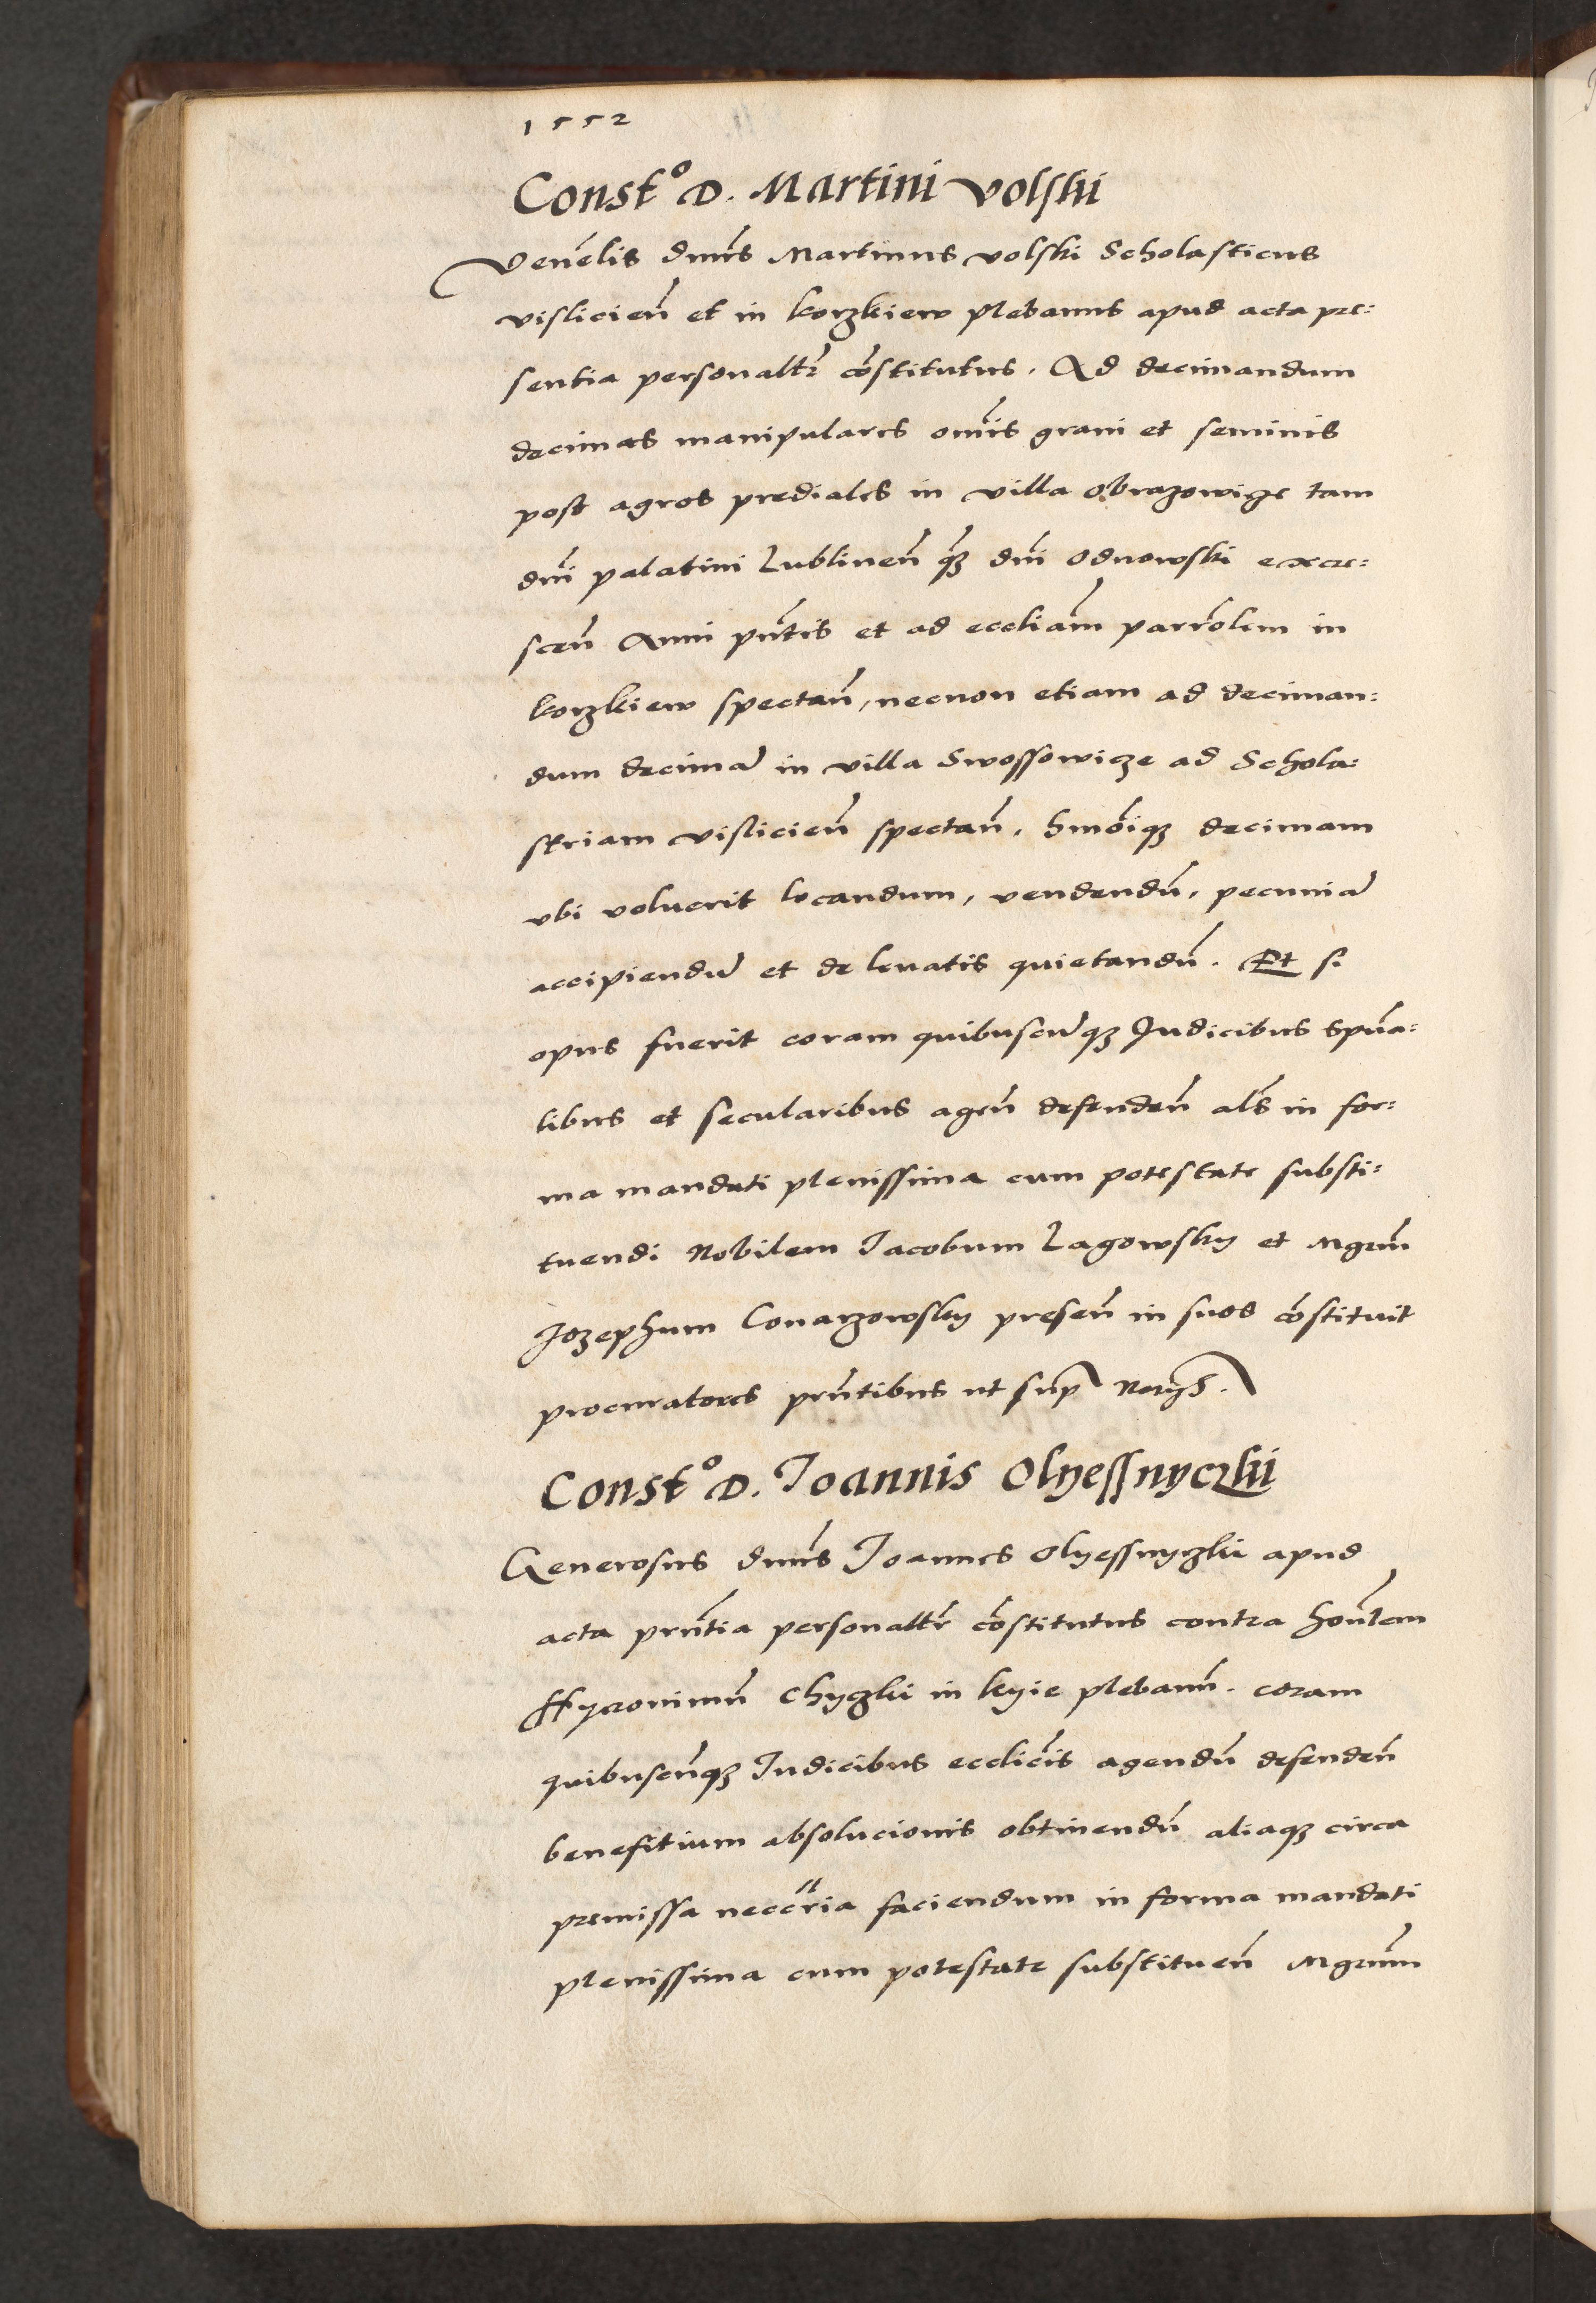 1552
Constº D. Martini Volski
Venelis dnus Martinus Volski Scholasticus
vislicien et in korzkiew plebanus apud acta pre:
sentia personaltr constitutus. Ad decimandum
decimas manipulares omis grani et seminis
post agros prediales in villa Obrazowicze tam
dni palatini Lublinen qz dni Odnowski excre:
scen Anni pntis et ad eccliam parrolem in
korzkiew spectan, necnon etiam ad deciman:
dum decima in villa Swossowicze ad Schola:
striam vislicien spectan. hmoiqz decimam
vbi voluerit locandum, vendendu, pecunia
accipiendu et de levatis quietandu. Et si
opus fuerit coram quibuscuqz Judicibus spua:
libus et secularibus agen defenden als in for:
ma mandati plenissima cum potestate substi:
tuendi Nobilem Jacobum Lagowsky et Mgrum
Jozephum Conarzowsky presen in suos constituit
procuratores pntibus ut sup
Constº D. Joannis Olyessnyczki
Generosus dnus Joannes Olyessnyczki apud
acta prntia personaltr constitutus contra honlem
Hyeronimu Chyczki in kyie plebanu. coram
quibuscunqz Judicibus ecclicis agendu defenden
benefitium absolucionis obtinendu aliaqz circa
premissa neccria faciendum in forma mandati
plenissima cum potestate substituen Mgrum